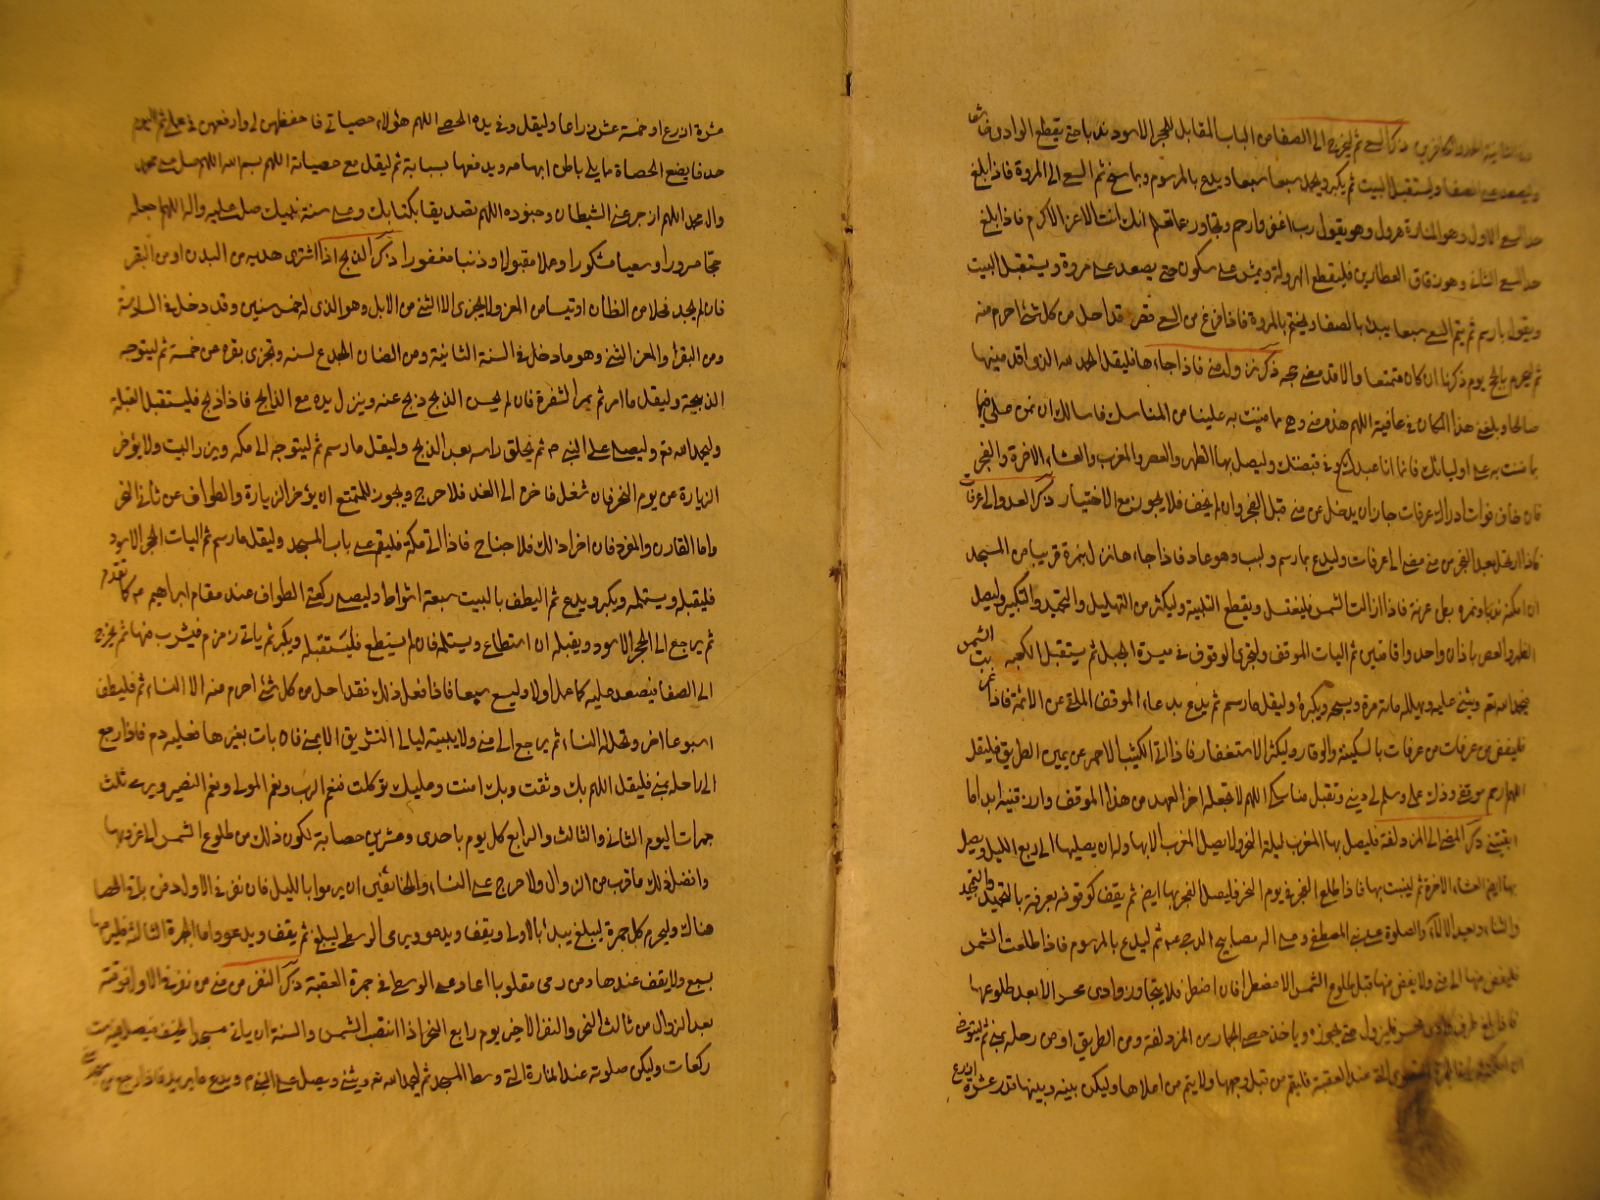 ذكر السعي ثم ليخرج الى الصفا من الباب المقابل للحجر الاسود ندبا حتى يقطع الوادي
ويصعد على الصفا ويستقبل البيت ثم يكبر ويحمد سبعا سبعا ويدع بالمرسوم وبما سنح ثم السعي الى المروة فاذا بلغ
حد السعي الاول وهو المنارة هرول وهو يقول رب اغفر وارحم وتجاوز عما تعلم انك انت الاعز الاكرم فاذا بلغ
حد السعي الثاني وهو زقاق العطارين فليقطع الهرولة ويمش على سكون حتى يصعد على مروة ويستقبل البيت
ويقول ما رسم ثم يتم السعي سبعا يبدء بالصفا ويختم بالمروة فاذا فرغ من السعي قصر وقد احل من كل شئ احرم منه
ثم ليحرم بالحج يوم ذكرنا ان كان متمتعا والا قد مضى حجه ذكر نزول منى فاذا جاءها فليقل الحمد لله الذي اقدمنيها
صالحا وبلغني هذا المكان في عافية اللهم هذه منى وهي مما مننت به علينا من المناسك فاسالك ان تمن علي فيها
بما مننت به على اوليائك فانما انا عبدك وفي قبضتك وليصل بها الظهر والعصر والمغرب والعشاء الاخرة والفجر
فان خاف فوات ادراك عرفات جاز ان يدخل من منى قبل الفجر وان لم يخف فلا يجوز مع الاختيار ذكر الغدو الى عرفات
فاذا ارتحل بعد الفجر من منى مضى الى عرفات وليدع بما رسم ويلب وهو غاد فاذا جاءها نزل بنمرة قريبا من المسجد
ان امكنه ندبا ونمرة بطن عرنة فاذا زالت الشمس فليغتسل ويقطع التلبية وليكثر من التهليل والتحميد والتكبير وليصل
الظهر والعصر باذان واحد واقامتين ثم ليات الموقف وليتحر الوقوف في ميسرة الجبل ثم يستقبل الكعبة
فيحمد الله تع ويثني عليه ويهلله مائة مرة ويسبحه ويكبره وليقل ما رسم ثم يدع بدعاء الموقف المتلقى عن الائمة فاذا غربت الشمس
فليفض من عرفات بالسكينة والوقار وليكثر الاستغفار فاذا اتى الكثيب الاحمر عن يمين الطريق فليقل
اللهم ارحم موقفي وزد في عملي وسلم لي ديني وتقبل مناسكي اللهم لا تجعله اخر العهد من هذا الموقف وارزقنيه ابدا ما
ابقيتني ذكر المضي الى المزدلفة فليصل بها المغرب ليلة النحر ولا يصل المغرب الا بها وله ان يصليها الى ربع الليل ويصل
بها ايضا العشاء الاخرة ثم ليبت بها فاذا طلع الفجر في يوم النحر فليصل الفجر بها ايضا ثم يقف كوقوفه بعرفة بالتحميد والتمجيد
والثناء وتعديد الالاء والصلوة على المصطفى وعلى اله مصابيح الدجى ثم ليدع بالمرسوم فاذا طلعت الشمس
فليفض منها الى منى ولا يفض منها قبل طلوع الشمس الا مضطرا فان اضطر فلا يتجاوز وادي محسر الا بعد طلوعها
فاذا بلغ طرف وادي محسر فليهرول حتى يجوزه وياخذ حصى الجمار من المزدلفة ومن الطريق او من رحله بمنى ثم ليتوض
ان امكنه التي عند العقبة فليقم من قبل وجهها ولا يقم من اعلاها وليكن بينه وبينها قدر عشرة اذرع
عشرة اذرع او خمسة عشر ذراعا وليقل وفي يده الحصى اللهم هؤلاء حصياتي فاحفظهن لي وارفعهن في عملي ثم
فليضع الحصاة ما يلي باطن ابهامه ويدفعها بسبابة ثم ليقل مع حصياته اللهم بسم الله اللهم صل على محمد
وال محمد اللهم ازجر عني الشيطان وجنوده اللهم تصديقا بكتابك وعلى سنة نبيك صل عليه واله اللهم اجعله
حجا مبرورا وسعيا مشكورا وعملا مقبولا وذنبا مغفورا ذكر الذبح اذا اشترى هديه من البدن او من البقر
فان لم يجد فحلا من الظأن او تيسا من المعز ولا يجزى الا الثني من الابل وهو الذي له خمس سنين وقد دخل في السادسة
ومن البقر والمعز الثني وهو ما دخل في السنة الثانية ومن الضان الجذع لسنه وتجزى بقرة عن خمسة ثم ليتوجه
الذبيحة وليقل ما امر ثم يمر الشفرة فان لم يحسن الذبح ذبح عنه وينزل يده مع الذابح فاذا ذبح فليستقبل القبلة
وليحمد الله تع وليصل على النبي ص ثم يحلق راسه بعد الذبح وليقل ما رسم ثم ليتوجه الى مكة ويزر البيت ولا يؤخر
الزيارة عن يوم النحر فان شغل فاخره الى الغد فلا حرج ويجوز للمتمتع ان يؤخر الزيارة والطواف عن ثاني النحر
واما القارن والمفرد فان اخرا ذلك فلا جناح فاذا اتى مكة فليقم على باب المسجد وليقل ما رسم ثم ليات الحجر الاسود
فليقبله ويستلمه ويكبر ويدع ثم ليطف بالبيت سبعة اشواط وليصلي ركعتي الطواف عند مقام ابراهيم ع كما تقدم
ثم يرجع الى الحجر الاسود ويقبله ان استطاع ويستلمه فان لم يستطع فليستقبله ويكبر ثم ياتي زمزم فيشرب منها ثم يخرج
الى الصفا فيصعد عليه كما عمل اولا وليسع سبعا فاذا فعل ذلك فقد احل من كل شئ احرم منه الا النساء ثم فليطف
اسبوعا اخر وتحل له النساء ثم يرجع الى منى ولا يبيت ليالي التشريق الا بمنى فان بات بغيرها فعليه دم فاذا رجع
الى راحله بمنى فليقل اللهم بك وثقت وبك امنت وعليك توكلت فنعم الرب ونعم المولى ونعم النصير ويرمى ثلث
جمرات اليوم الثاني والثالث والرابع كل يوم باحدى وعشرين حصاة لكون ذلك من طلوع الشمس الى غروبها
وافضل ذلك ما قرب من الزوال ولا حرج على النساء والخائفين ان يرموا بالليل فان نفر في الاول دفن بقية الحصا
هناك وليرم كل جمرة بسبع يبدأ بالاولى ويقف ويدعو ويرمي الوسطى بسبع ثم يقف ويدعو واما الجمرة الثالثة فليرمها
بسبع ولا يقف عندها ومن رمى مقلوبا اعاد على الوسطى وجمرة العقبة ذكر النفر من منى من نفر في الاول فوقته
بعد الزوال من ثالث النحر والنفر الاخير يوم رابع النحر اذا انتفخ الشمس والسنة ان ياتي مسجد الخيف فيصلي فيه ست
ركعات وليكن صلوته عند المنارة التي وسط المسجد ثم ليحمد الله تع ويثني ويصل على النبي ص ويدع ما يريد فاذا رجع من